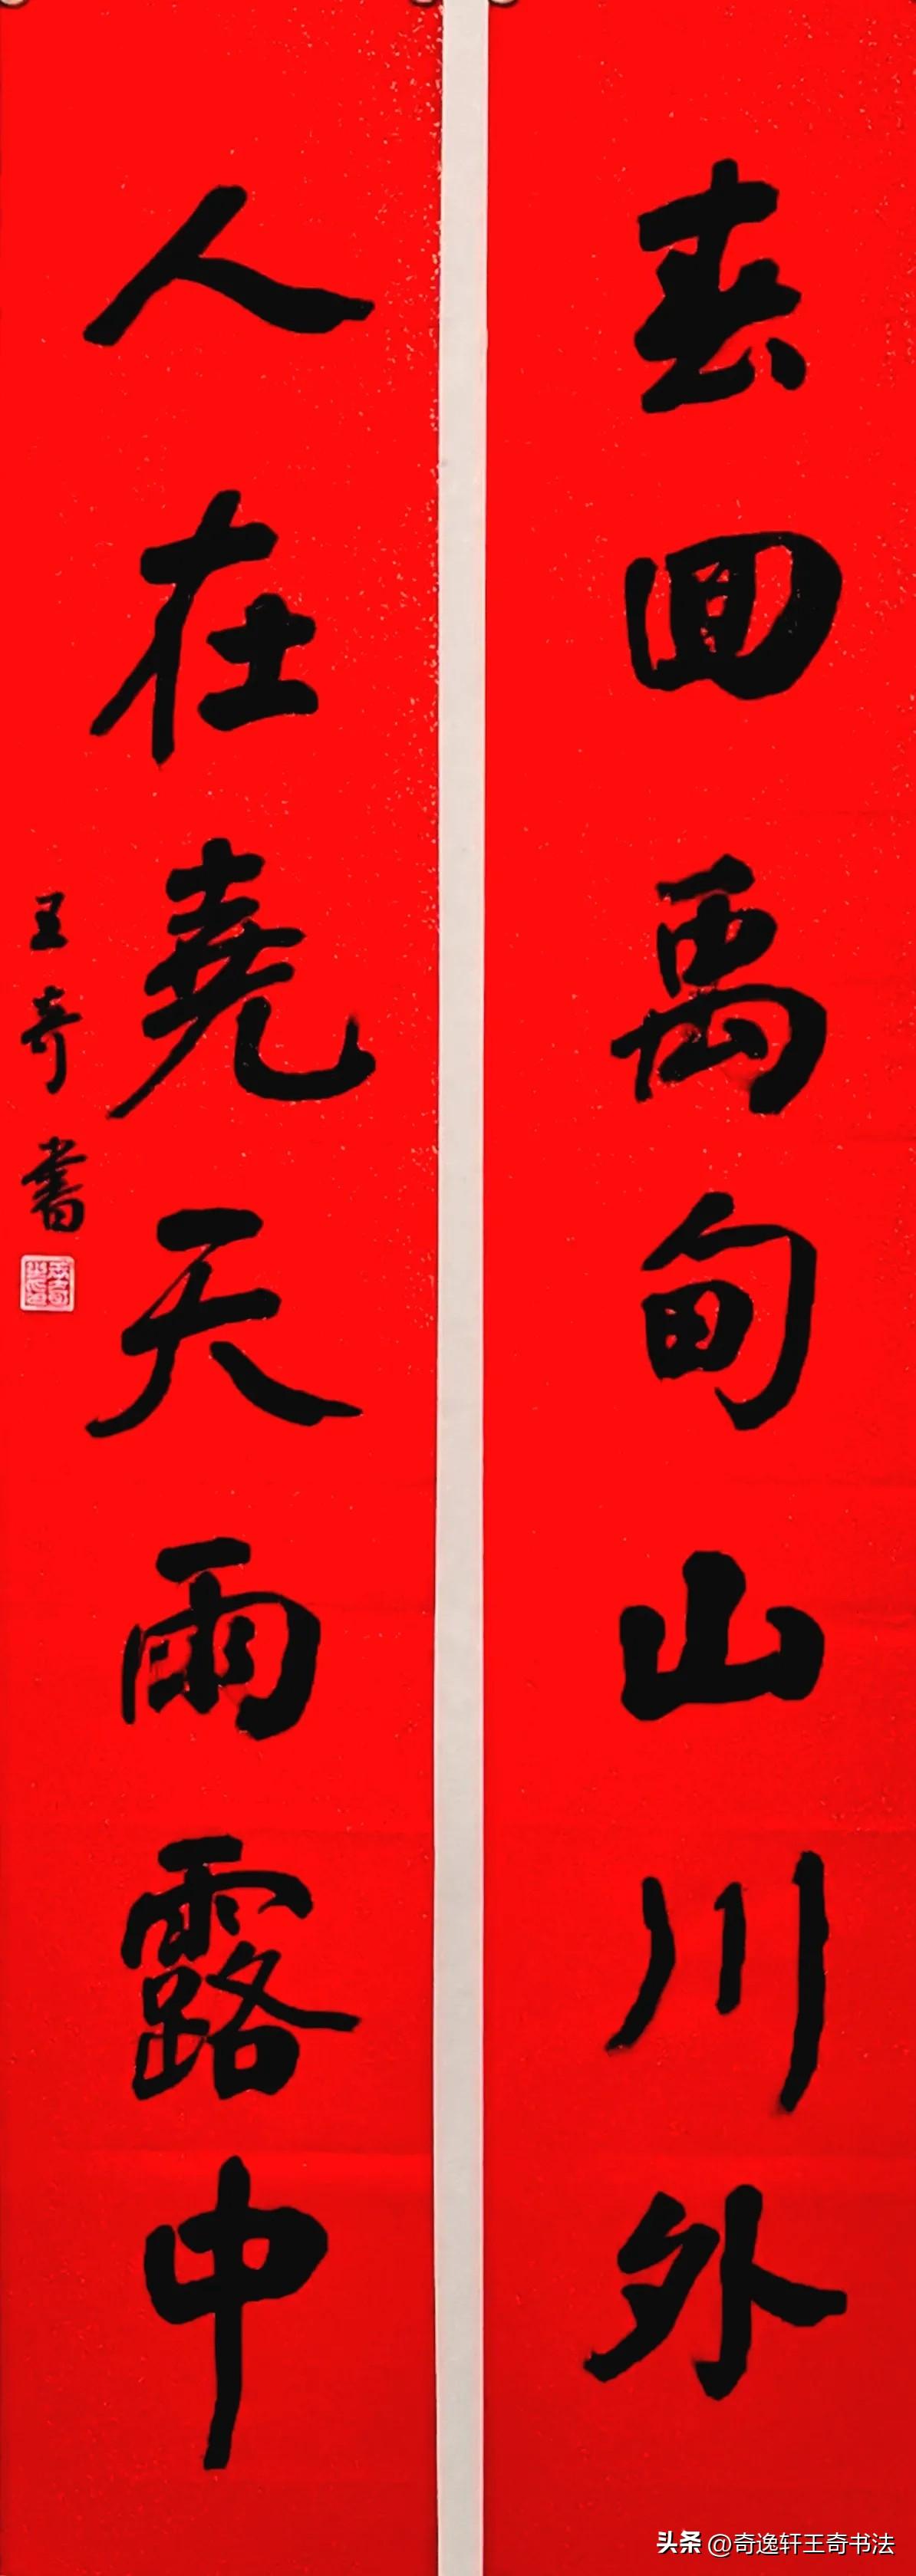 春回禹甸山川外
人在堯天雨露中
王奇書
头条 @奇逸轩王奇书法